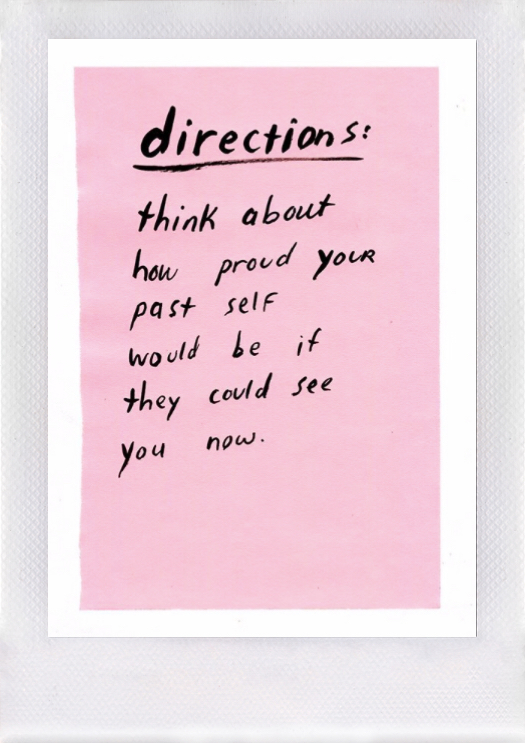 directions:
think about
how proud your
past self
would be if
they could see
you now.